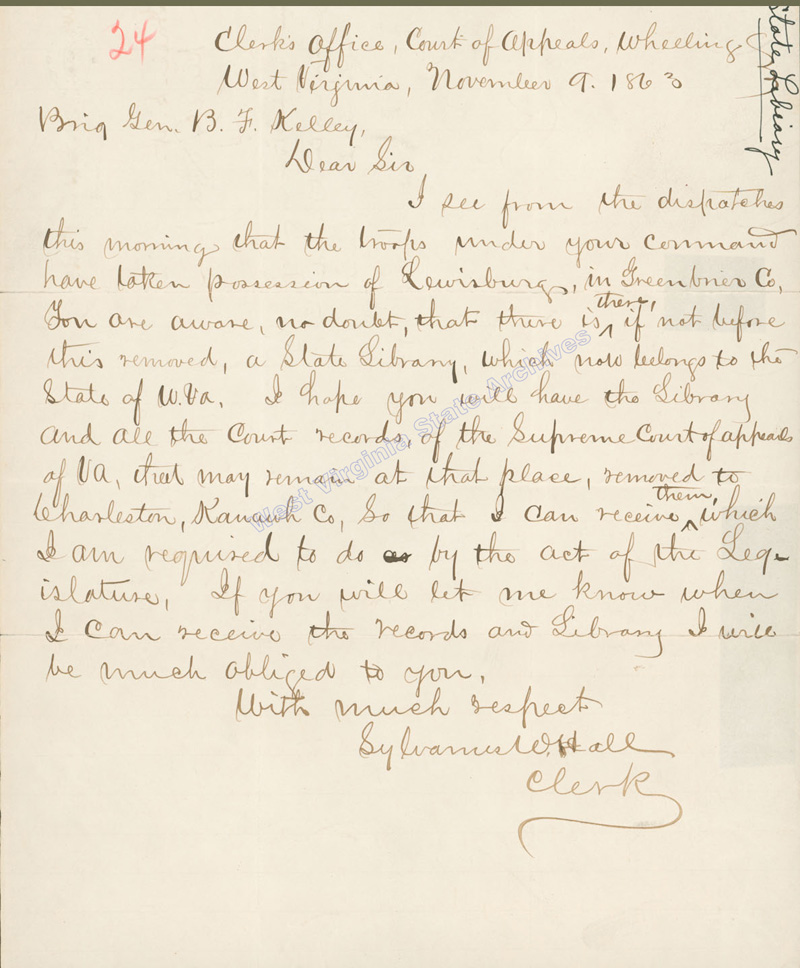 24
State Library
Clerk's Office, Court of Appeals, Wheeling
West Virginia, November 9. 1863
Brig Gen. B. F. Kelley,
Dear Sir
I see from the dispatches
this morning that the troops under your command
have taken possession of Lewisburg, in Greenbrier Co,
You are aware, no doubt, that there is there, if not before
this removed, a State Library, which now belongs to the
State of W. Va. I hope you will have the Library
and all the Court records, of the Supreme Court of appeals
of VA, that may remain at that place, removed to
Charleston, Kanawh Co, So that I can receive them, which
I am required to do as by the act of the Leg-
islature, If you will let me know when
I can receive the records and Library I will
be much obliged to you,
With much respect
Sylvanus W. Hall
Clerk
West Virginia State Archives